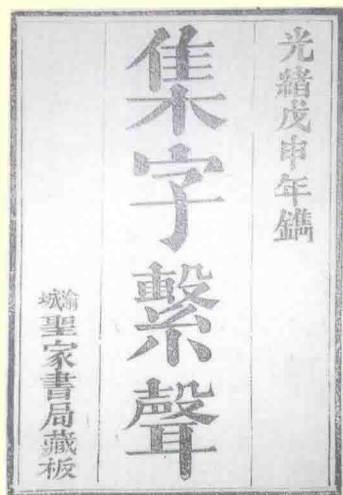 光緒戊申年鐫
集字繫聲
渝城聖家書局藏板